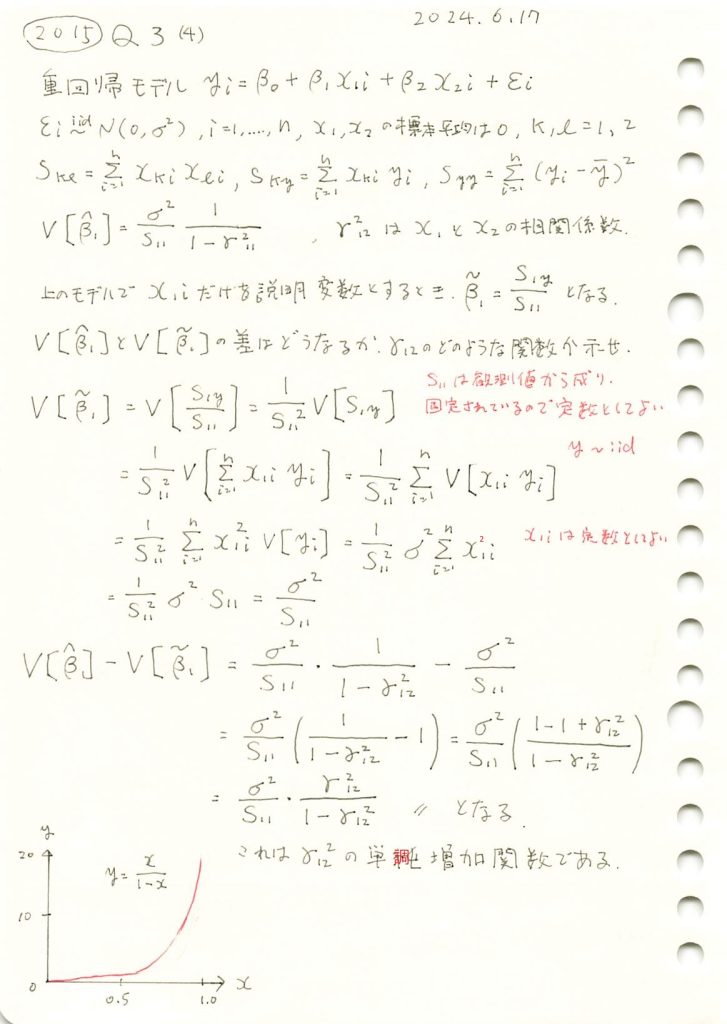 2024.6.17
2015 Q3 (4)
重回帰モデル yi = β0 + β1 x1i + β2 x2i + εi
εi iid~ N(0, σ²), i=1,...,n, x1, x2 の標本平均は0, k,l=1,2
Skl = Σ_{i=1}^{n} xki xli, Sky = Σ_{i=1}^{n} xki yi, Syy = Σ_{i=1}^{n} (yi - ȳ)²
V[β̂1] = σ²/S11 1/(1-r²11) , r²12 は x1 と x2 の相関係数.
上のモデルで x1i だけを説明変数とするとき. β̃1 = S1y/S11 となる.
V[β̂1] と V[β̃1] の差はどうなるか. r12のどのような関数か示せ.
V[β̃1] = V[S1y/S11] = 1/S11² V[S1y]
S11は観測値から成り.
固定されているので定数としてよい
y~iid
= 1/S11² V[Σ_{i=1}^{n} x1i yi] = 1/S11² Σ_{i=1}^{n} V[x1i yi]
= 1/S11² Σ_{i=1}^{n} x1i² V[yi] = 1/S11² σ² Σ_{i=1}^{n} x1i²
x1i は定数としてよい
= 1/S11² σ² · S11 = σ²/S11
V[β̂] - V[β̃1] = σ²/S11 · 1/(1-r12²) - σ²/S11
= σ²/S11 (1/(1-r12²) - 1) = σ²/S11 ((1-1+r12²)/(1-r12²))
= σ²/S11 · r12²/(1-r12²) 〃 となる.
これは r12² の単調増加関数である.
y
20
y = x/(1-x)
10
0
0.5
1.0
x